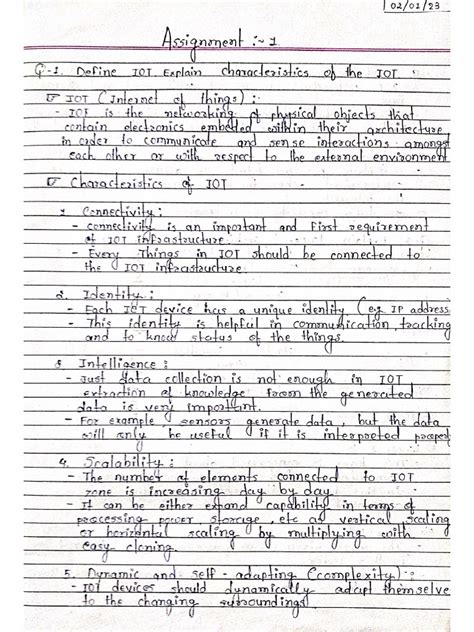 02/01/23
Assignment :- 1
Q-1. Define IOT. Explain characteristics of the IOT.
IOT (Internet of things) :
- IOT is the networking of physical objects that
contain electronics embeded within their architecture
in order to communicate and sense interactions amongst
each other or with respect to the external environment
Characteristics of IOT
1. Connectivity :
- connectivity is an important and first requirement
of IOT infrastructure.
- Every Things in IOT should be connected to
the IOT infrastructure.
2. Identity :
- Each IOT device has a unique idenity (eg. IP address
- This identity is helpful in communication, tracking
and to know status of the things.
3. Intelligence :
- Just data collection is not enough in IOT
extraction of knowledge from the generated
data is very important.
- For example sensors generate data, but the data
will only be useful if it is interpreted properly
4. Scalability :
- The number of elements connected to IOT
zone is increasing day by day.
- It can be either expand capability in terms of
processing power, storage, etc as vertical scaling
or horizontal scaling by multiplying with
easy cloning.
5. Dynamic and self-adapting (complexity) :
- IOT devices should dynamically adapt themselve
to the changing surroundings